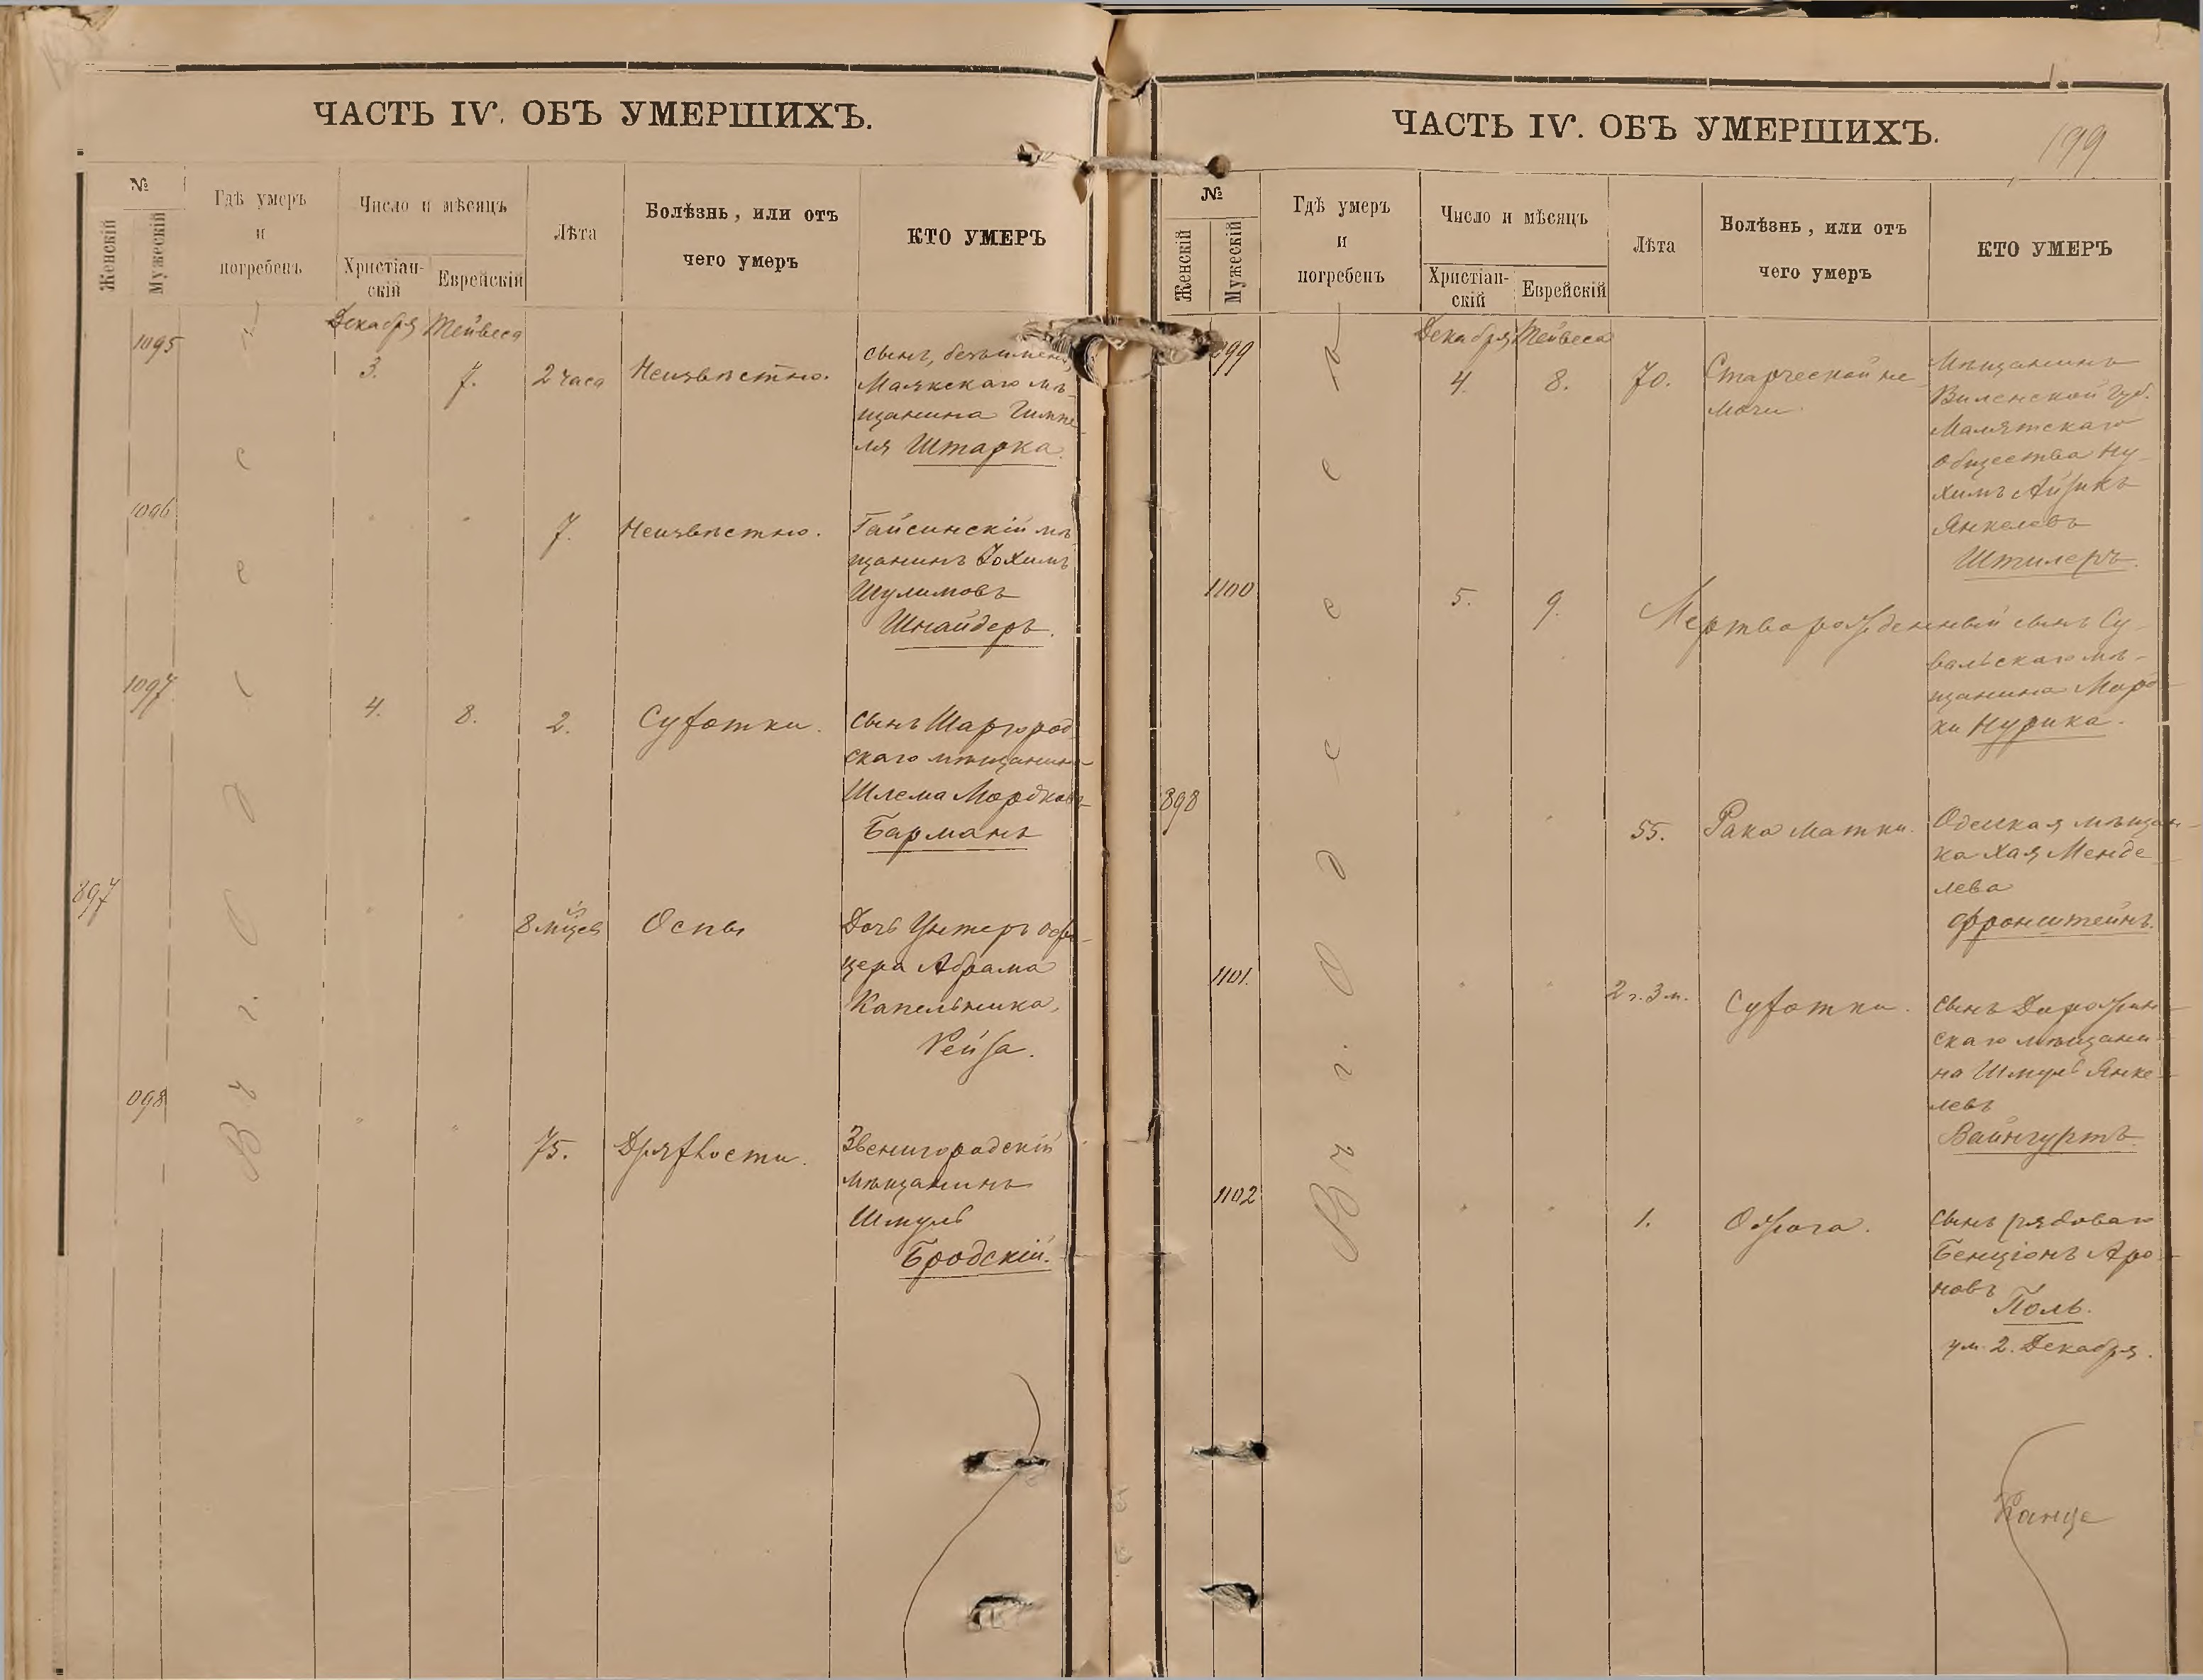 ЧАСТЬ IV. ОБЪ УМЕРШИХЪ.
№
Женскій
Мужескій
Гдѣ умеръ
и
погребенъ
Число и мѣсяцъ
Христіан-
скій
Еврейскій
Лѣта
Болѣзнь, или отъ
чего умеръ
КТО УМЕРЪ
Въ г. Одессѣ
Декабря Тейвеса
1095
3. 7. 2 часа Неизвѣстно.
сынъ, безъимен
Маякскаго мѣ-
щанина Гимпе-
ля Штарка.
1096
" " 7. Неизвѣстно.
Гайсинскій мѣ-
щанинъ Іохимъ
Шулимовъ
Шнайдеръ.
1097
4. 8. 2. Сухотки.
сынъ Шаргород-
скаго мѣщанина
Шлема Мордковъ
Барманъ
897
" " 8 м-цевъ Оспы
Дочь Унтеръ офи-
цера Абрама
Капельника,
Рейза.
098
" " 75. Дряхлости.
Звенигородскій
мѣщанинъ
Шмуль
Бродскій.
ЧАСТЬ IV. ОБЪ УМЕРШИХЪ.
199
№
Женскій
Мужескій
Гдѣ умеръ
и
погребенъ
Число и мѣсяцъ
Христіан-
скій
Еврейскій
Лѣта
Болѣзнь, или отъ
чего умеръ
КТО УМЕРЪ
Въ г. Одессѣ
Декабря Тейвеса
099
4. 8. 70. Старческой не-
мочи
Мѣщанинъ
Виленской Губ.
Малятскаго
Общества Ну-
химъ Айзикъ
Янкелевъ
Штилеръ.
1100
5. 9. Мертворожденный сынъ Су-
вальскаго мѣ-
щанина Морд-
ки Нурика.
898
" " 55. Рака матки.
Одесская мѣщан-
ка Хая Менде-
лева
Фронштейнъ.
1101.
" " 2 г. 3 м. Сухотки.
сынъ Дорожин-
скаго мѣщани-
на Шмуль Янке-
левъ
Вайнгуртъ.
1102
" " 1. Ожога.
сынъ рядоваго
Бенціонъ Аро-
новъ
Поль.
ум. 2. Декабря.